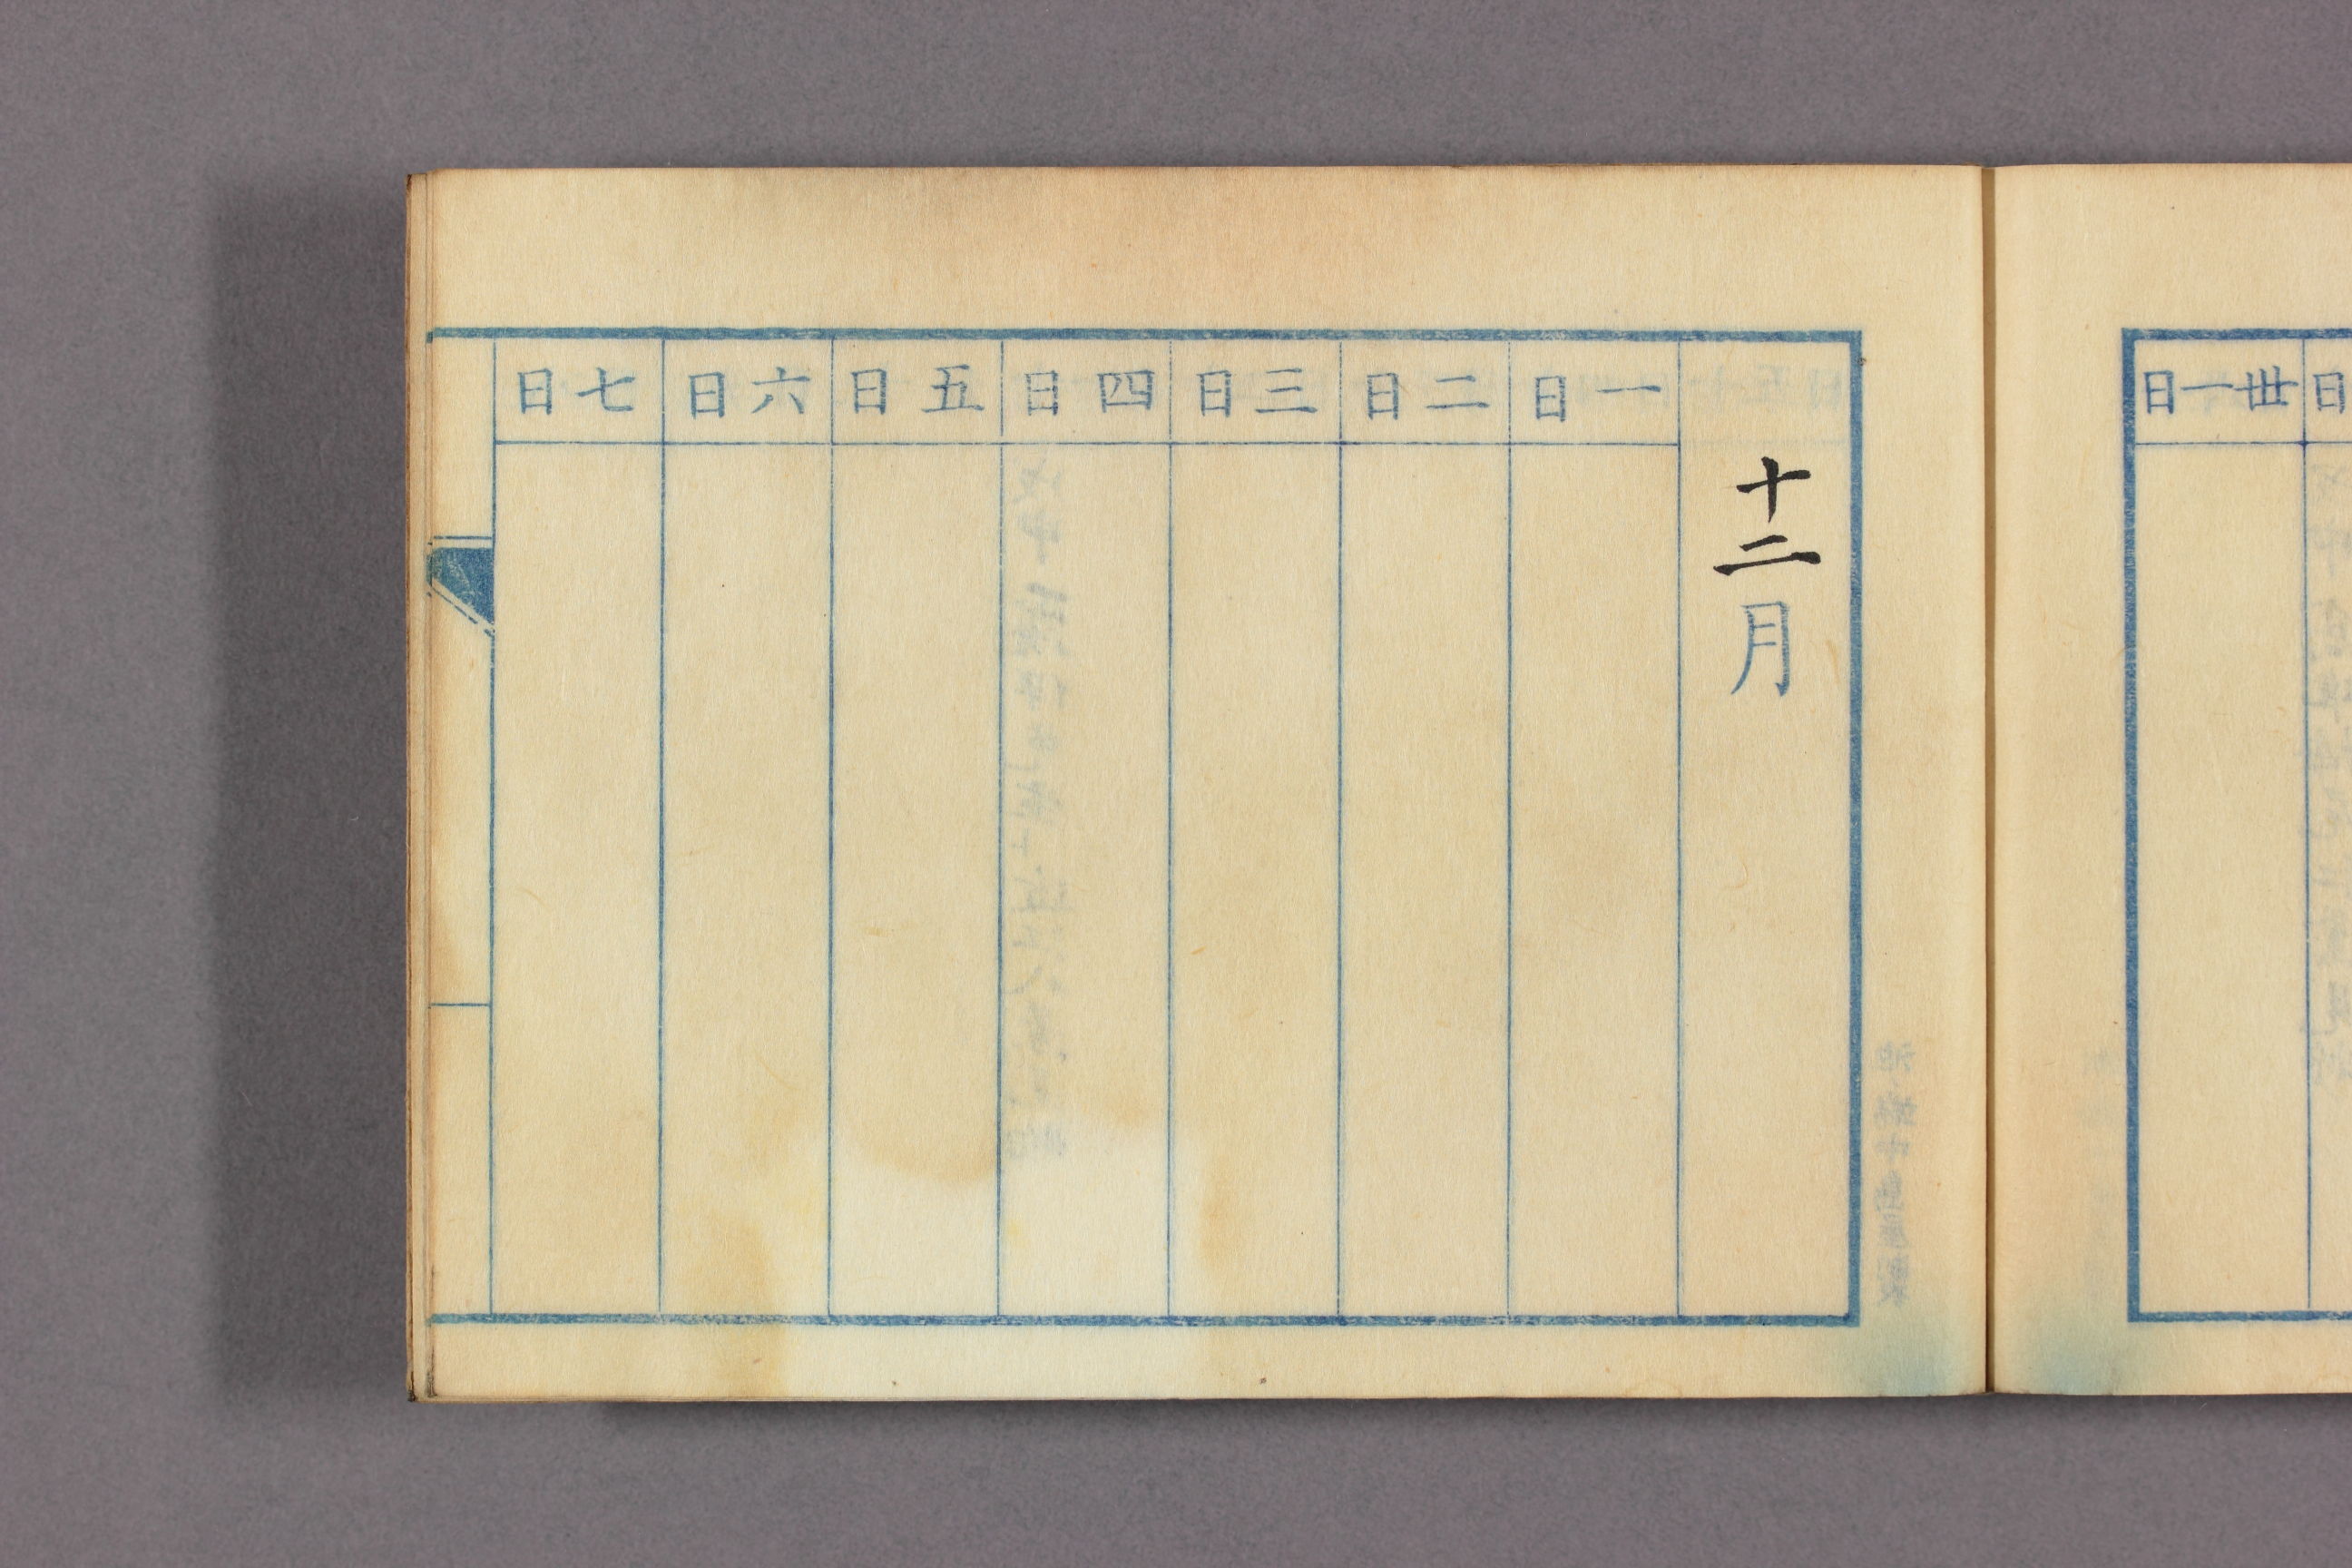 卅一日
十二月
一日
二日
三日
四日
五日
六日
七日